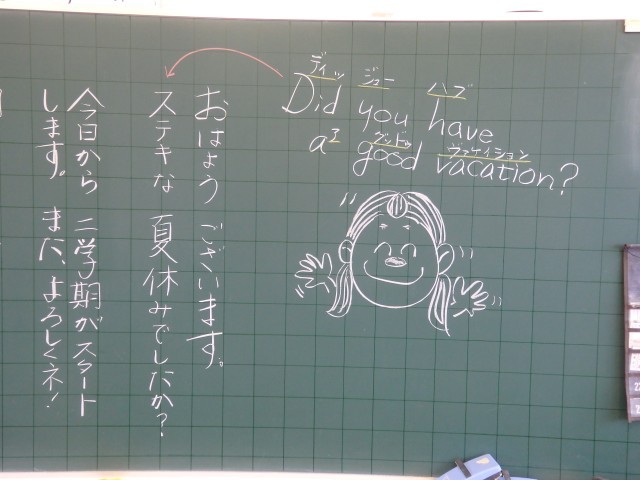 ディッ ジュー ハブ
Did you have
ア グッドゥ ヴァケイション
a good vacation?
おはよう ございます。
ステキな 夏休みでしたか?
今日から 二学期がスタート
します。 また、よろしくネ!